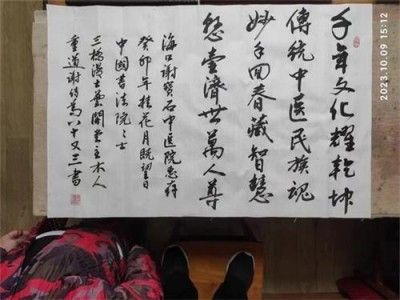 千年文化耀乾坤
傳統中医民族魂
妙手回春藏智慧
懸壺濟世萬人尊
海口謝寳石中医院惠存
癸卯年桂花月既望日
中國書法院之士
三橋漫士藝閣堂主木人
重道謝八十又三書
2023.10.09 15:12